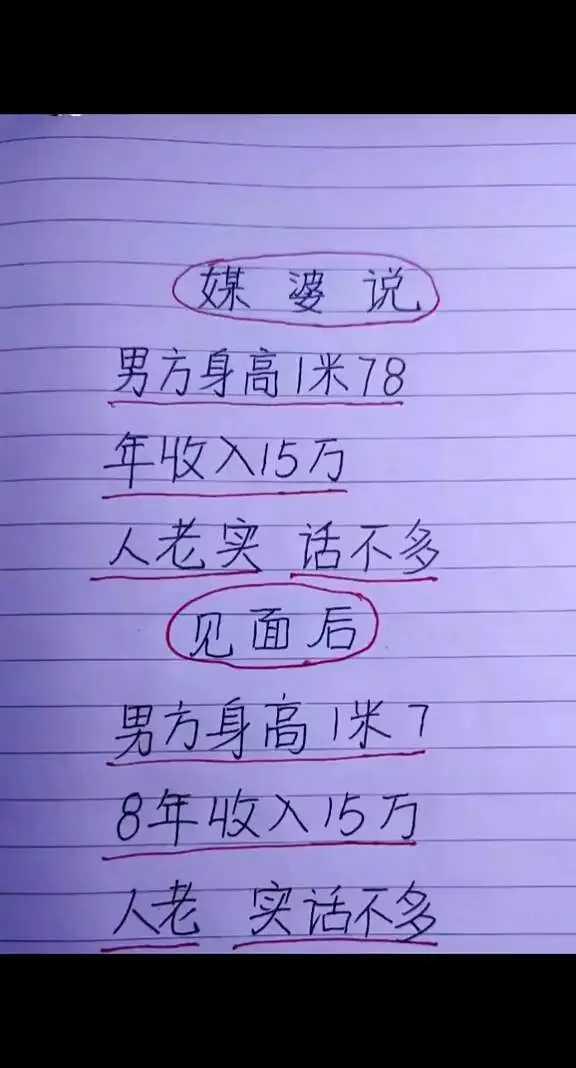 媒婆说
男方身高1米78
年收入15万
人老实 话不多
见面后
男方身高1米7
8年收入15万
人老 实话不多